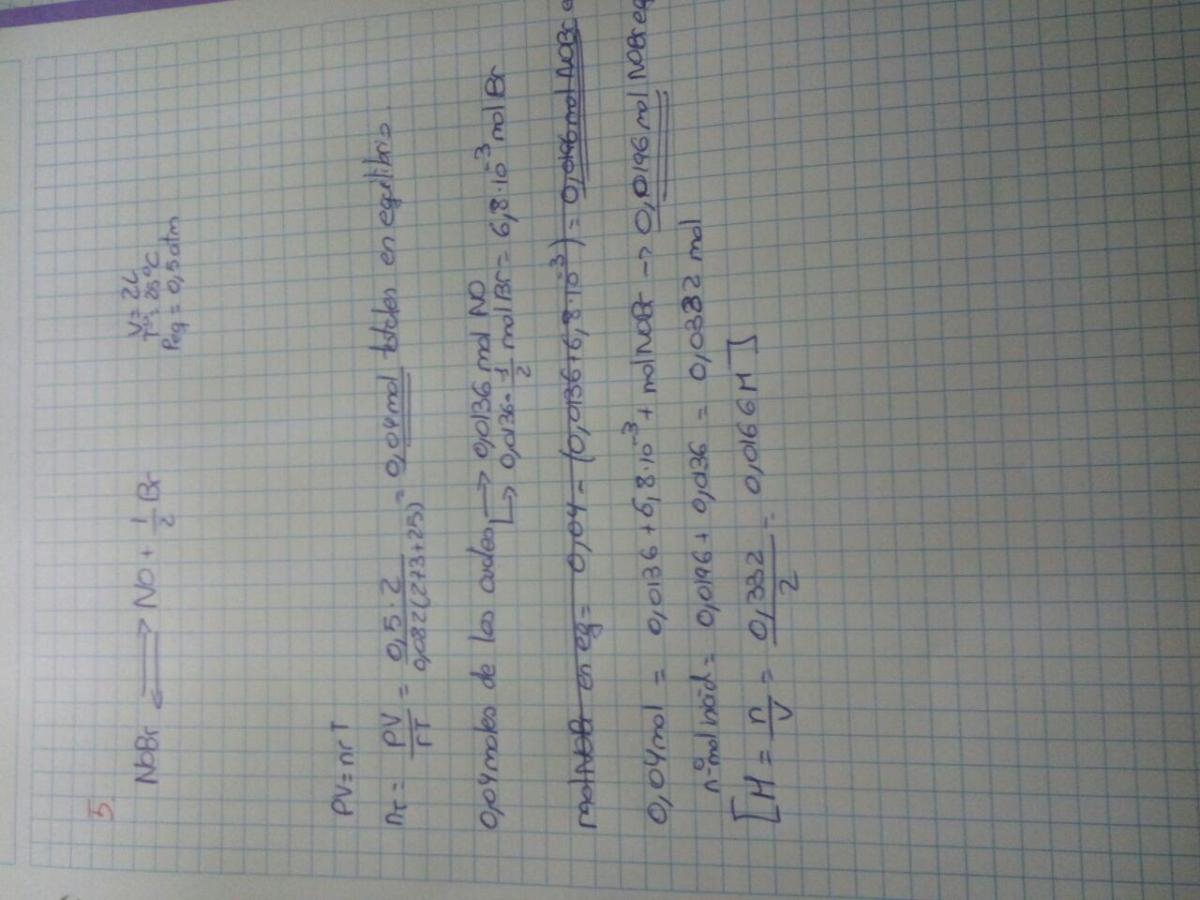 5.
NOBr ⇌ NO + 1/2 Br
V = 2L
Tª = 25ºC
Peq = 0,5 atm
PV = nrT
nT = PV/rT = 0,5 · 2 / 0,082 (273+25) = 0,04 mol totales en equilibrio.
0,04 moles de los cuales → 0,0136 mol NO
↳ 0,0136 · 1/2 mol Br = 6,8 · 10⁻³ mol Br
mol NOBr en eq = 0,04 - (0,0136 + 6,8 · 10⁻³) = 0,0196 mol NOBr e
0,04 mol = 0,0136 + 6,8 · 10⁻³ + mol NOBr → 0,0196 mol NOBr eq
nº mol inicial = 0,0196 + 0,036 = 0,0332 mol
[M = n/V = 0,332/2 = 0,0166 M]